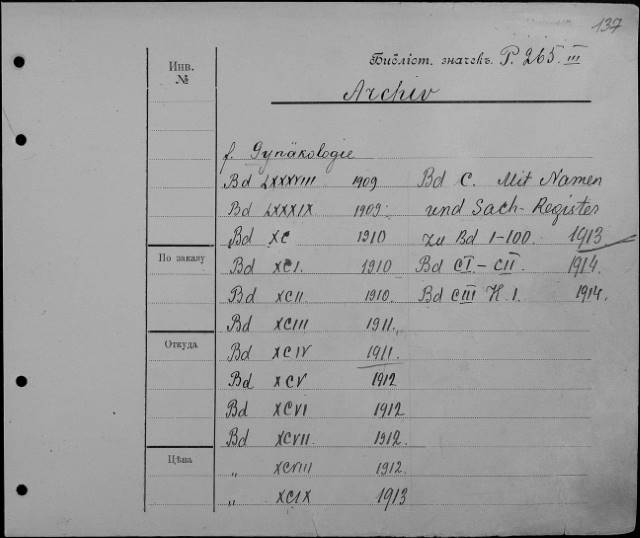 137
Библіот. значекъ. P. 265. III
Инв.
№
Archiv
f. Gynäkologie
Bd LXXXVIII 1909
Bd LXXXIX 1909.
Bd XC 1910
По заказу
Bd XCI. 1910
Bd XCII. 1910.
Bd XCIII 1911.
Откуда
Bd XCIV 1911.
Bd XCV 1912
Bd XCVI 1912
Bd XCVII. 1912.
Цѣна
„ XCVIII 1912.
„ XCIX 1913
Bd C. Mit Namen
und Sach-Register
zu Bd 1-100. 1913
Bd CI-CII. 1914.
Bd CIII H. 1. 1914.